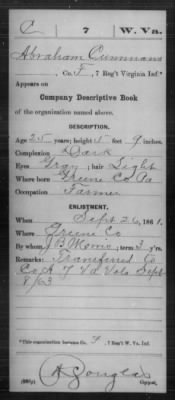 C 7 W. Va.
Abraham Cummans
, Co. F, 7 Reg't Virginia Inf.*
Appears on
Company Descriptive Book
of the organization named above.
DESCRIPTION.
Age 25 years; height 5 feet 9 inches.
Complexion Dark
Eyes Gray; hair Light
Where born Greene Co Pa
Occupation Farmer
ENLISTMENT.
When Sept 26, 1861.
Where Greene Co
By whom J B Morris; term 3 y'rs.
Remarks: Transferred to
Co A 7 Va Vols Sept
8/63
*This organization became Co. F, 7 Reg't W. Va. Inf.
Copyist.